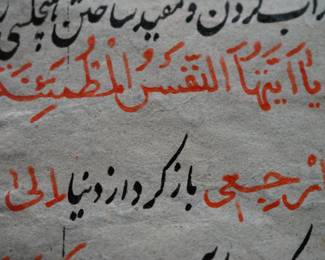 کردن و مفید ساختن
يَا أَيَّتُهَا النَّفْسُ الْمُطْمَئِنَّة
ارْجِعِي باز کرد از دنیا الی